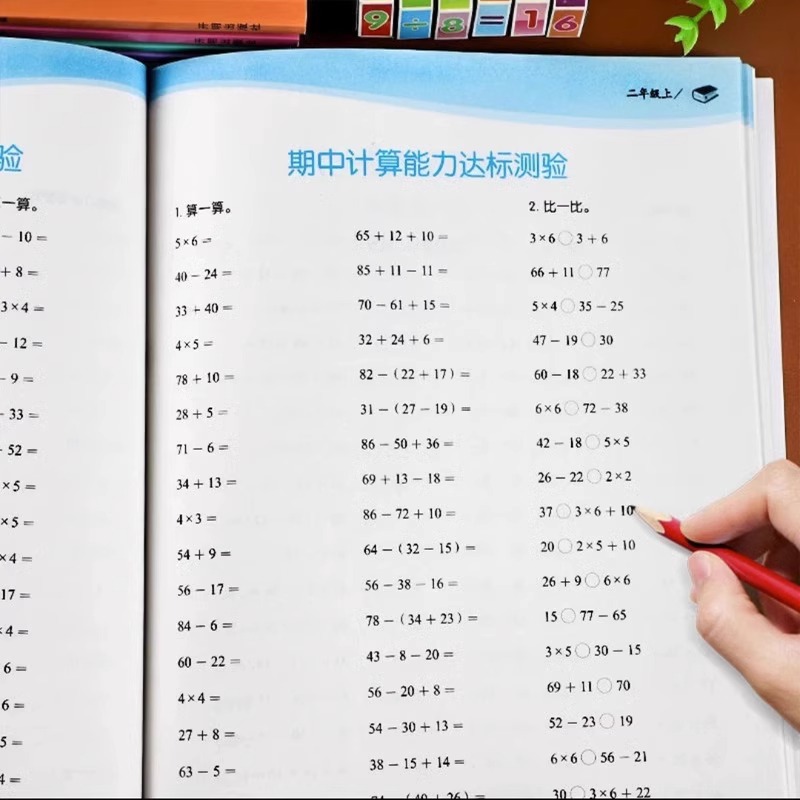 9÷8=16
二年级上/
验
期中计算能力达标测验
一算。
- 10 =
+ 8 =
3×4 =
- 12 =
- 9 =
- 33 =
+ 52 =
×5 =
×5 =
×4 =
17 =
×4 =
6 =
6 =
5 =
4 =
1. 算一算。
5×6 =
40 - 24 =
33 + 40 =
4×5 =
78 + 10 =
28 + 5 =
71 - 6 =
34 + 13 =
4×3 =
54 + 9 =
56 - 17 =
84 - 6 =
60 - 22 =
4×4 =
27 + 8 =
63 - 5 =
65 + 12 + 10 =
85 + 11 - 11 =
70 - 61 + 15 =
32 + 24 + 6 =
82 - (22 + 17) =
31 - (27 - 19) =
86 - 50 + 36 =
69 + 13 - 18 =
86 - 72 + 10 =
64 - (32 - 15) =
56 - 38 - 16 =
78 - (34 + 23) =
43 - 8 - 20 =
56 - 20 + 8 =
54 - 30 + 13 =
38 - 15 + 14 =
2. 比一比。
3×6○3 + 6
66 + 11○77
5×4○35 - 25
47 - 19○30
60 - 18○22 + 33
6×6○72 - 38
42 - 18○5×5
26 - 22○2×2
37○3×6 + 10
20○2×5 + 10
26 + 9○6×6
15○77 - 65
3×5○30 - 15
69 + 11○70
52 - 23○19
6×6○56 - 21
30○3×6 + 22